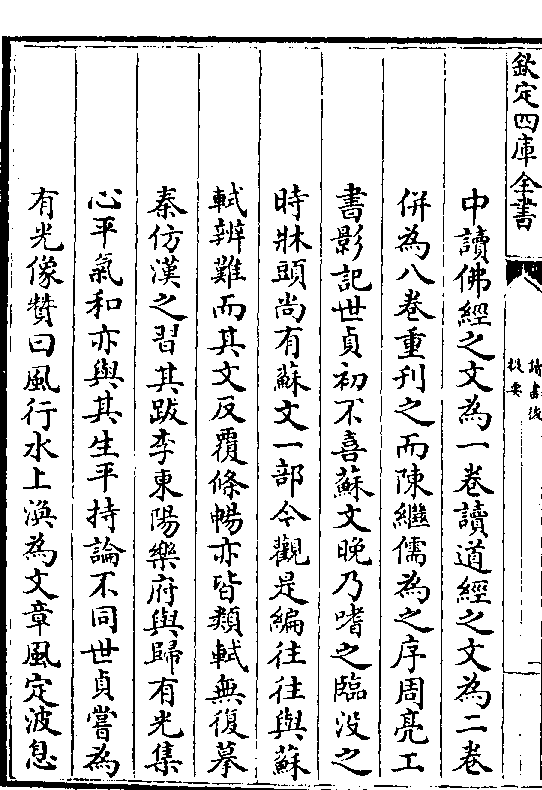 欽定四庫全書
讀書後
提要
中讀佛經之文為一卷讀道經之文為二卷
併為八卷重刊之而陳繼儒為之序周亮工
書影記世貞初不喜蘇文晚乃嗜之臨没之
時牀頭尚有蘇文一部今觀是編往往與蘇
軾辨難而其文反覆條暢亦皆類軾無復摹
秦仿漢之習其跋李東陽樂府與歸有光集
心平氣和亦與其生平持論不同世貞嘗為
有光像贊曰風行水上渙為文章風定波息